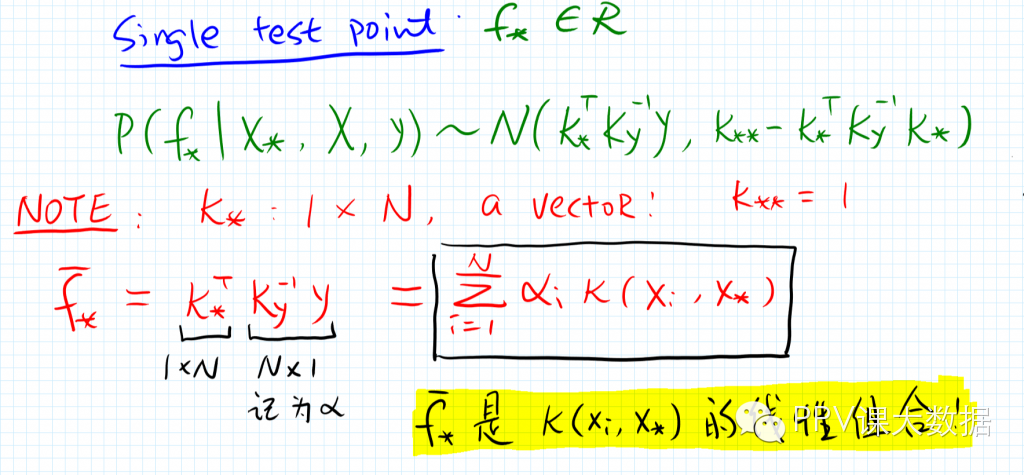 Single test point: f* ∈ R
P(f* | X*, X, y) ~ N(k*ᵀ Ky⁻¹ y, k** - k*ᵀ Ky⁻¹ k*)
NOTE: k* : 1 × N, a vectoR! k** = 1
f̄* = k*ᵀ Ky⁻¹ y = ∑ᵢ₌₁ᴺ αᵢ k(xᵢ, x*)
1×N N×1
记为α
f̄* 是 k(xᵢ, x*) 的线性组合!
PPV课大数据